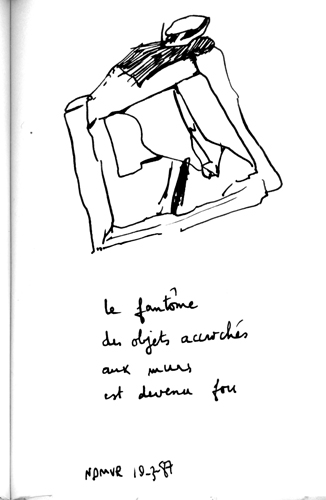 le fantôme
des objets accrochés
aux murs
est devenu fou
NDMVR 18-7-87